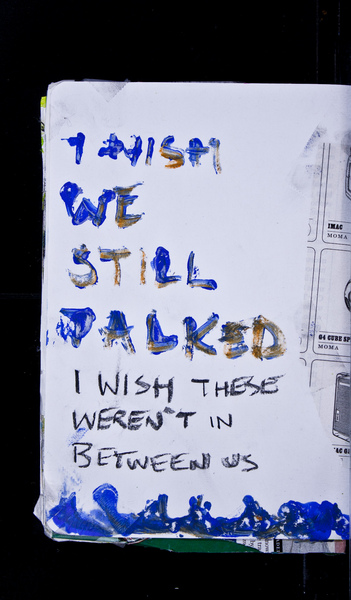 I WISH
WE
STILL
TALKED
I WISH THESE
WEREN'T IN
BETWEEN US
IMAC
MOMA
64 CUBE SP
MOMA